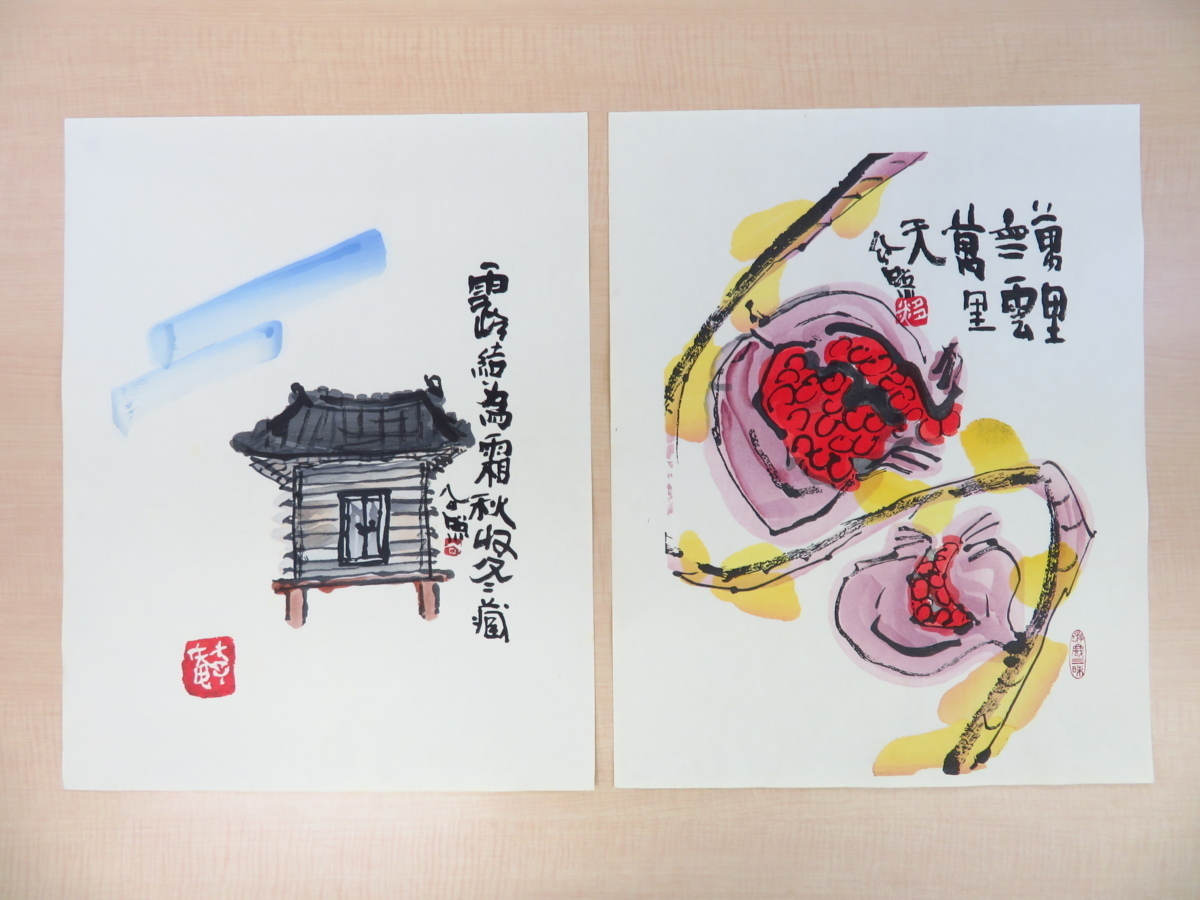 露結為霜秋收冬藏
公照
萬里
無雲
萬里
天
公照